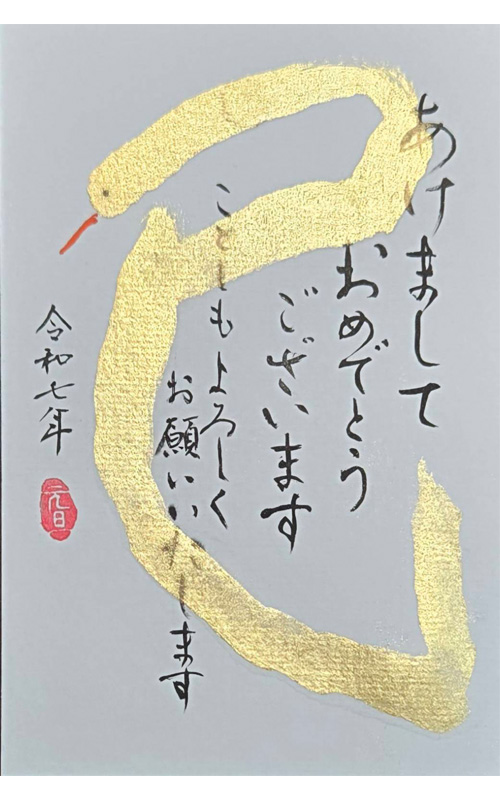 あけまして
おめでとう
ございます
ことしもよろしく
お願いいたします
令和七年
元旦